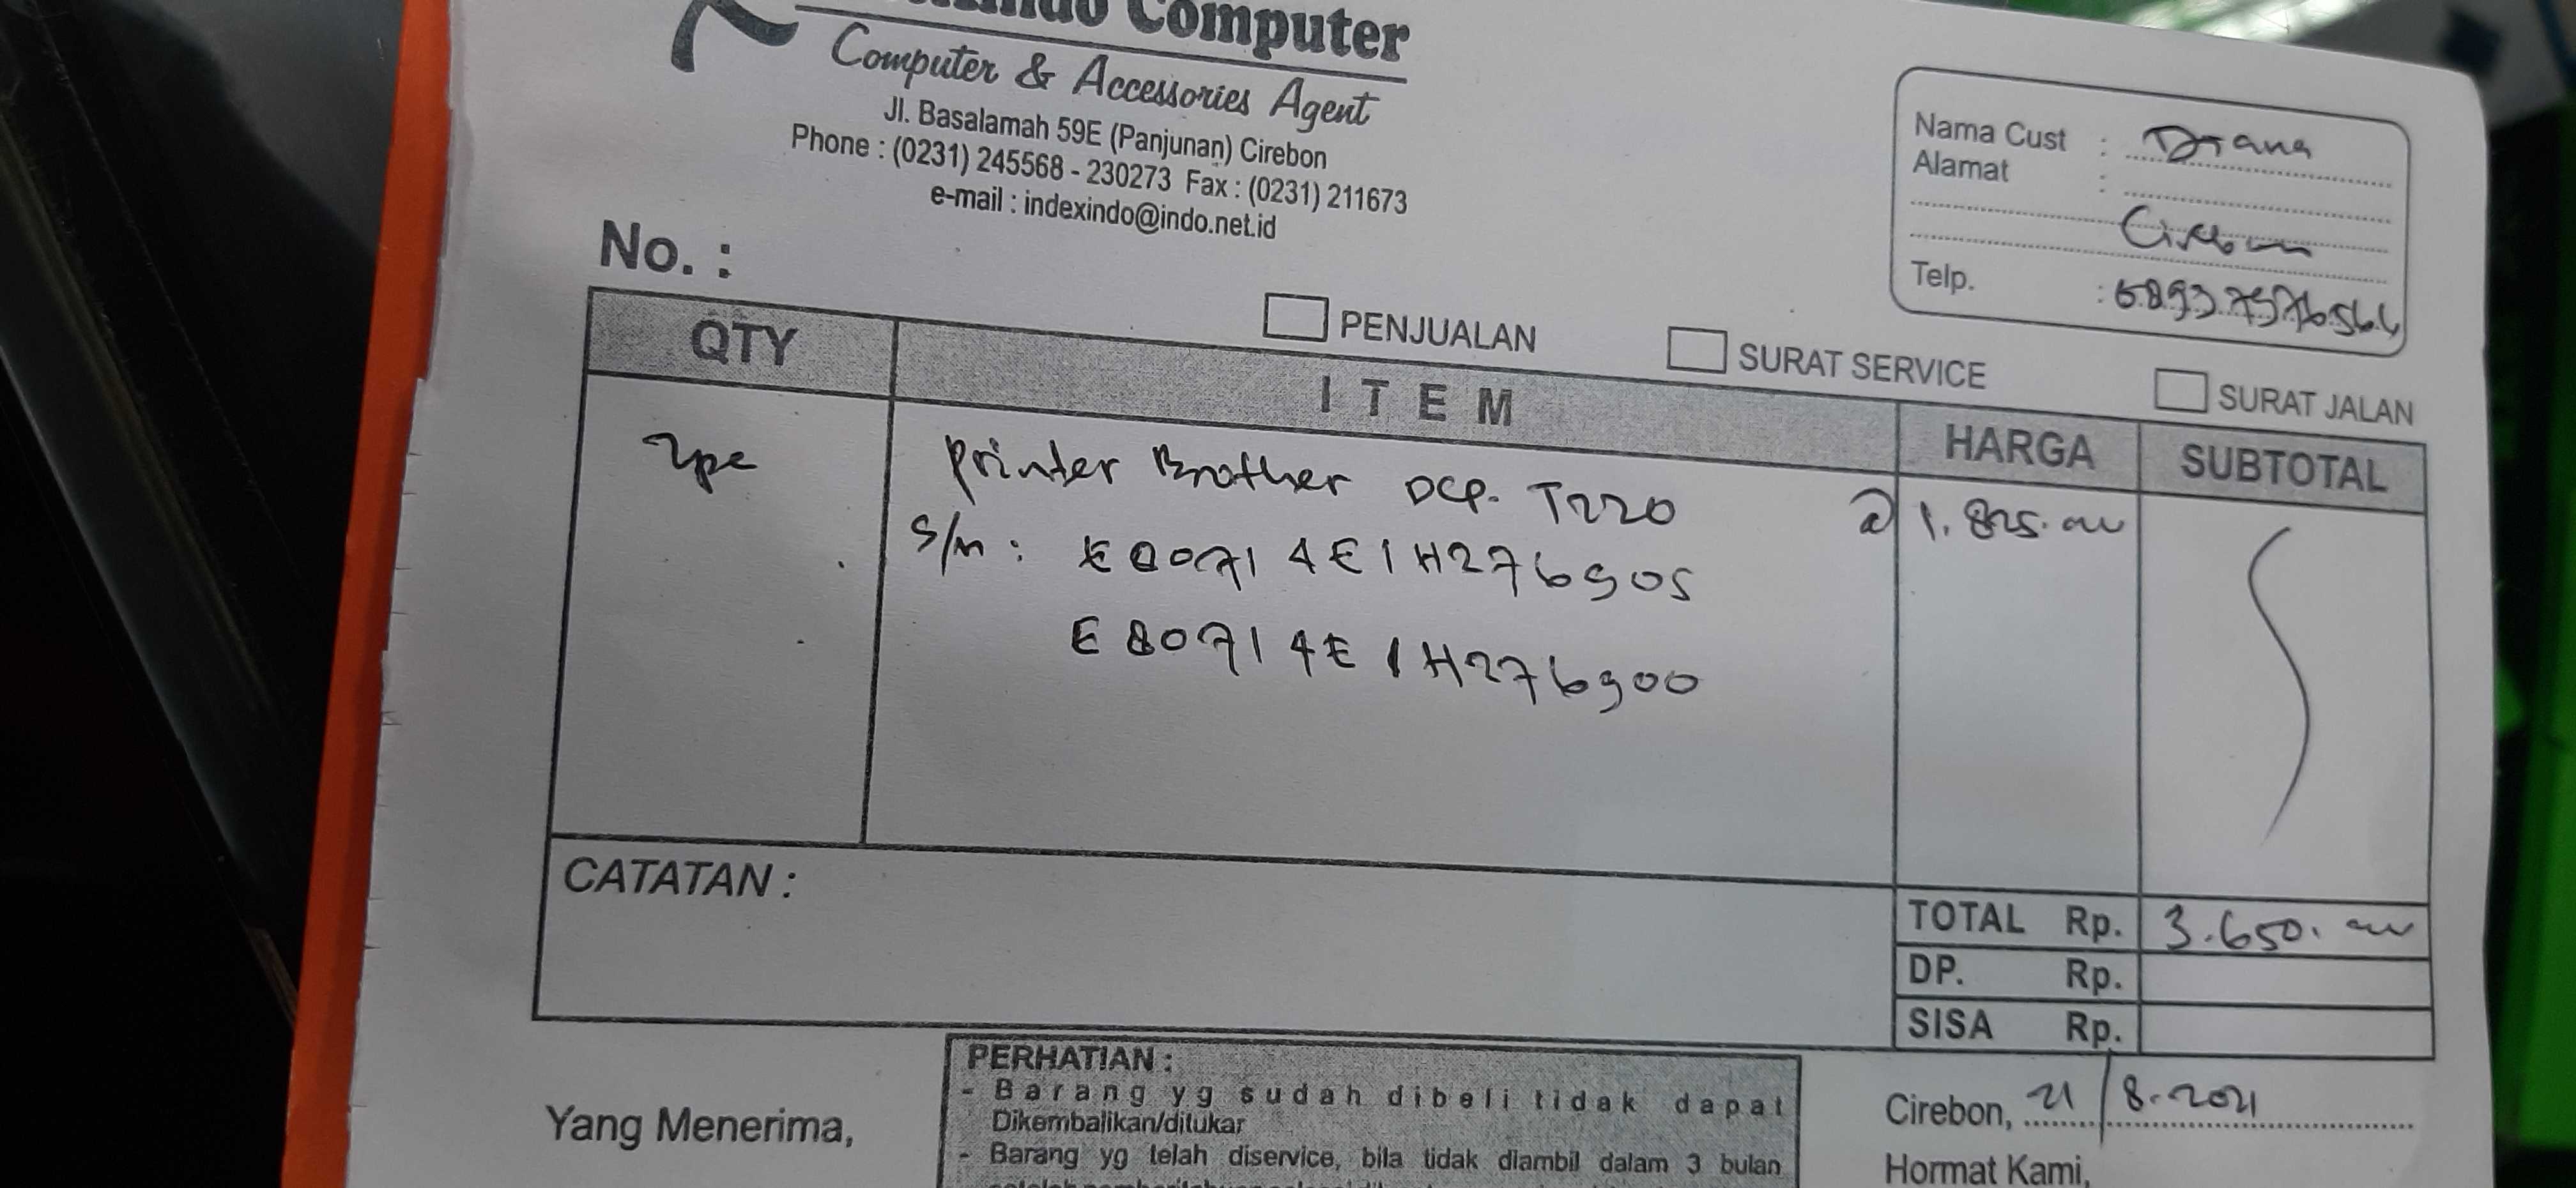 Computer
Computer & Accessories Agent
Jl. Basalamah 59E (Panjunan) Cirebon
Phone : (0231) 245568 - 230273 Fax : (0231) 211673
e-mail : indexindo@indo.net.id
Nama Cust : Diana
Alamat :
Cirebon
Telp. :
No. :
PENJUALAN
SURAT SERVICE
SURAT JALAN
QTY ITEM HARGA SUBTOTAL
2pc Printer Brother DCP. T220 @ 1.825.000
S/n : E80714E1H276905
E80714E1H276900
CATATAN :
TOTAL Rp. 3.650.000
DP. Rp.
SISA Rp.
Cirebon, 21/8-2021
Hormat Kami,
Yang Menerima,
PERHATIAN :
- Barang yg sudah dibeli tidak dapat
Dikembalikan/ditukar
- Barang yg telah diservice, bila tidak diambil dalam 3 bulan